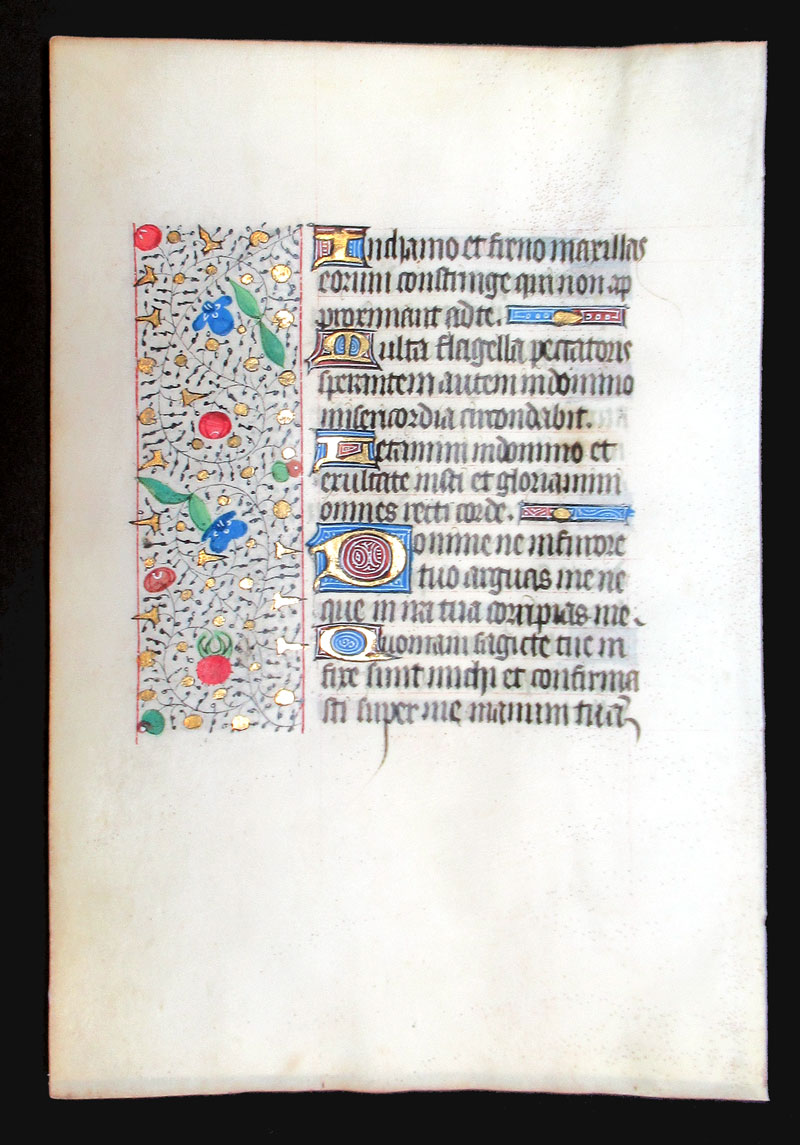 In chamo et freno maxillas
eorum constringe qui non ap
proximant ad te.
Multa flagella peccatoris
sperantem autem in domino
misericordia circondabit.
Letamini in domino et
exultate iusti et gloriamini
omnes recti corde.
Domine ne in furore
tuo arguas me ne
que in ira tua corripias me.
Quoniam sagicte tue in
fixe sunt michi et confirma
sti super me manum tuā